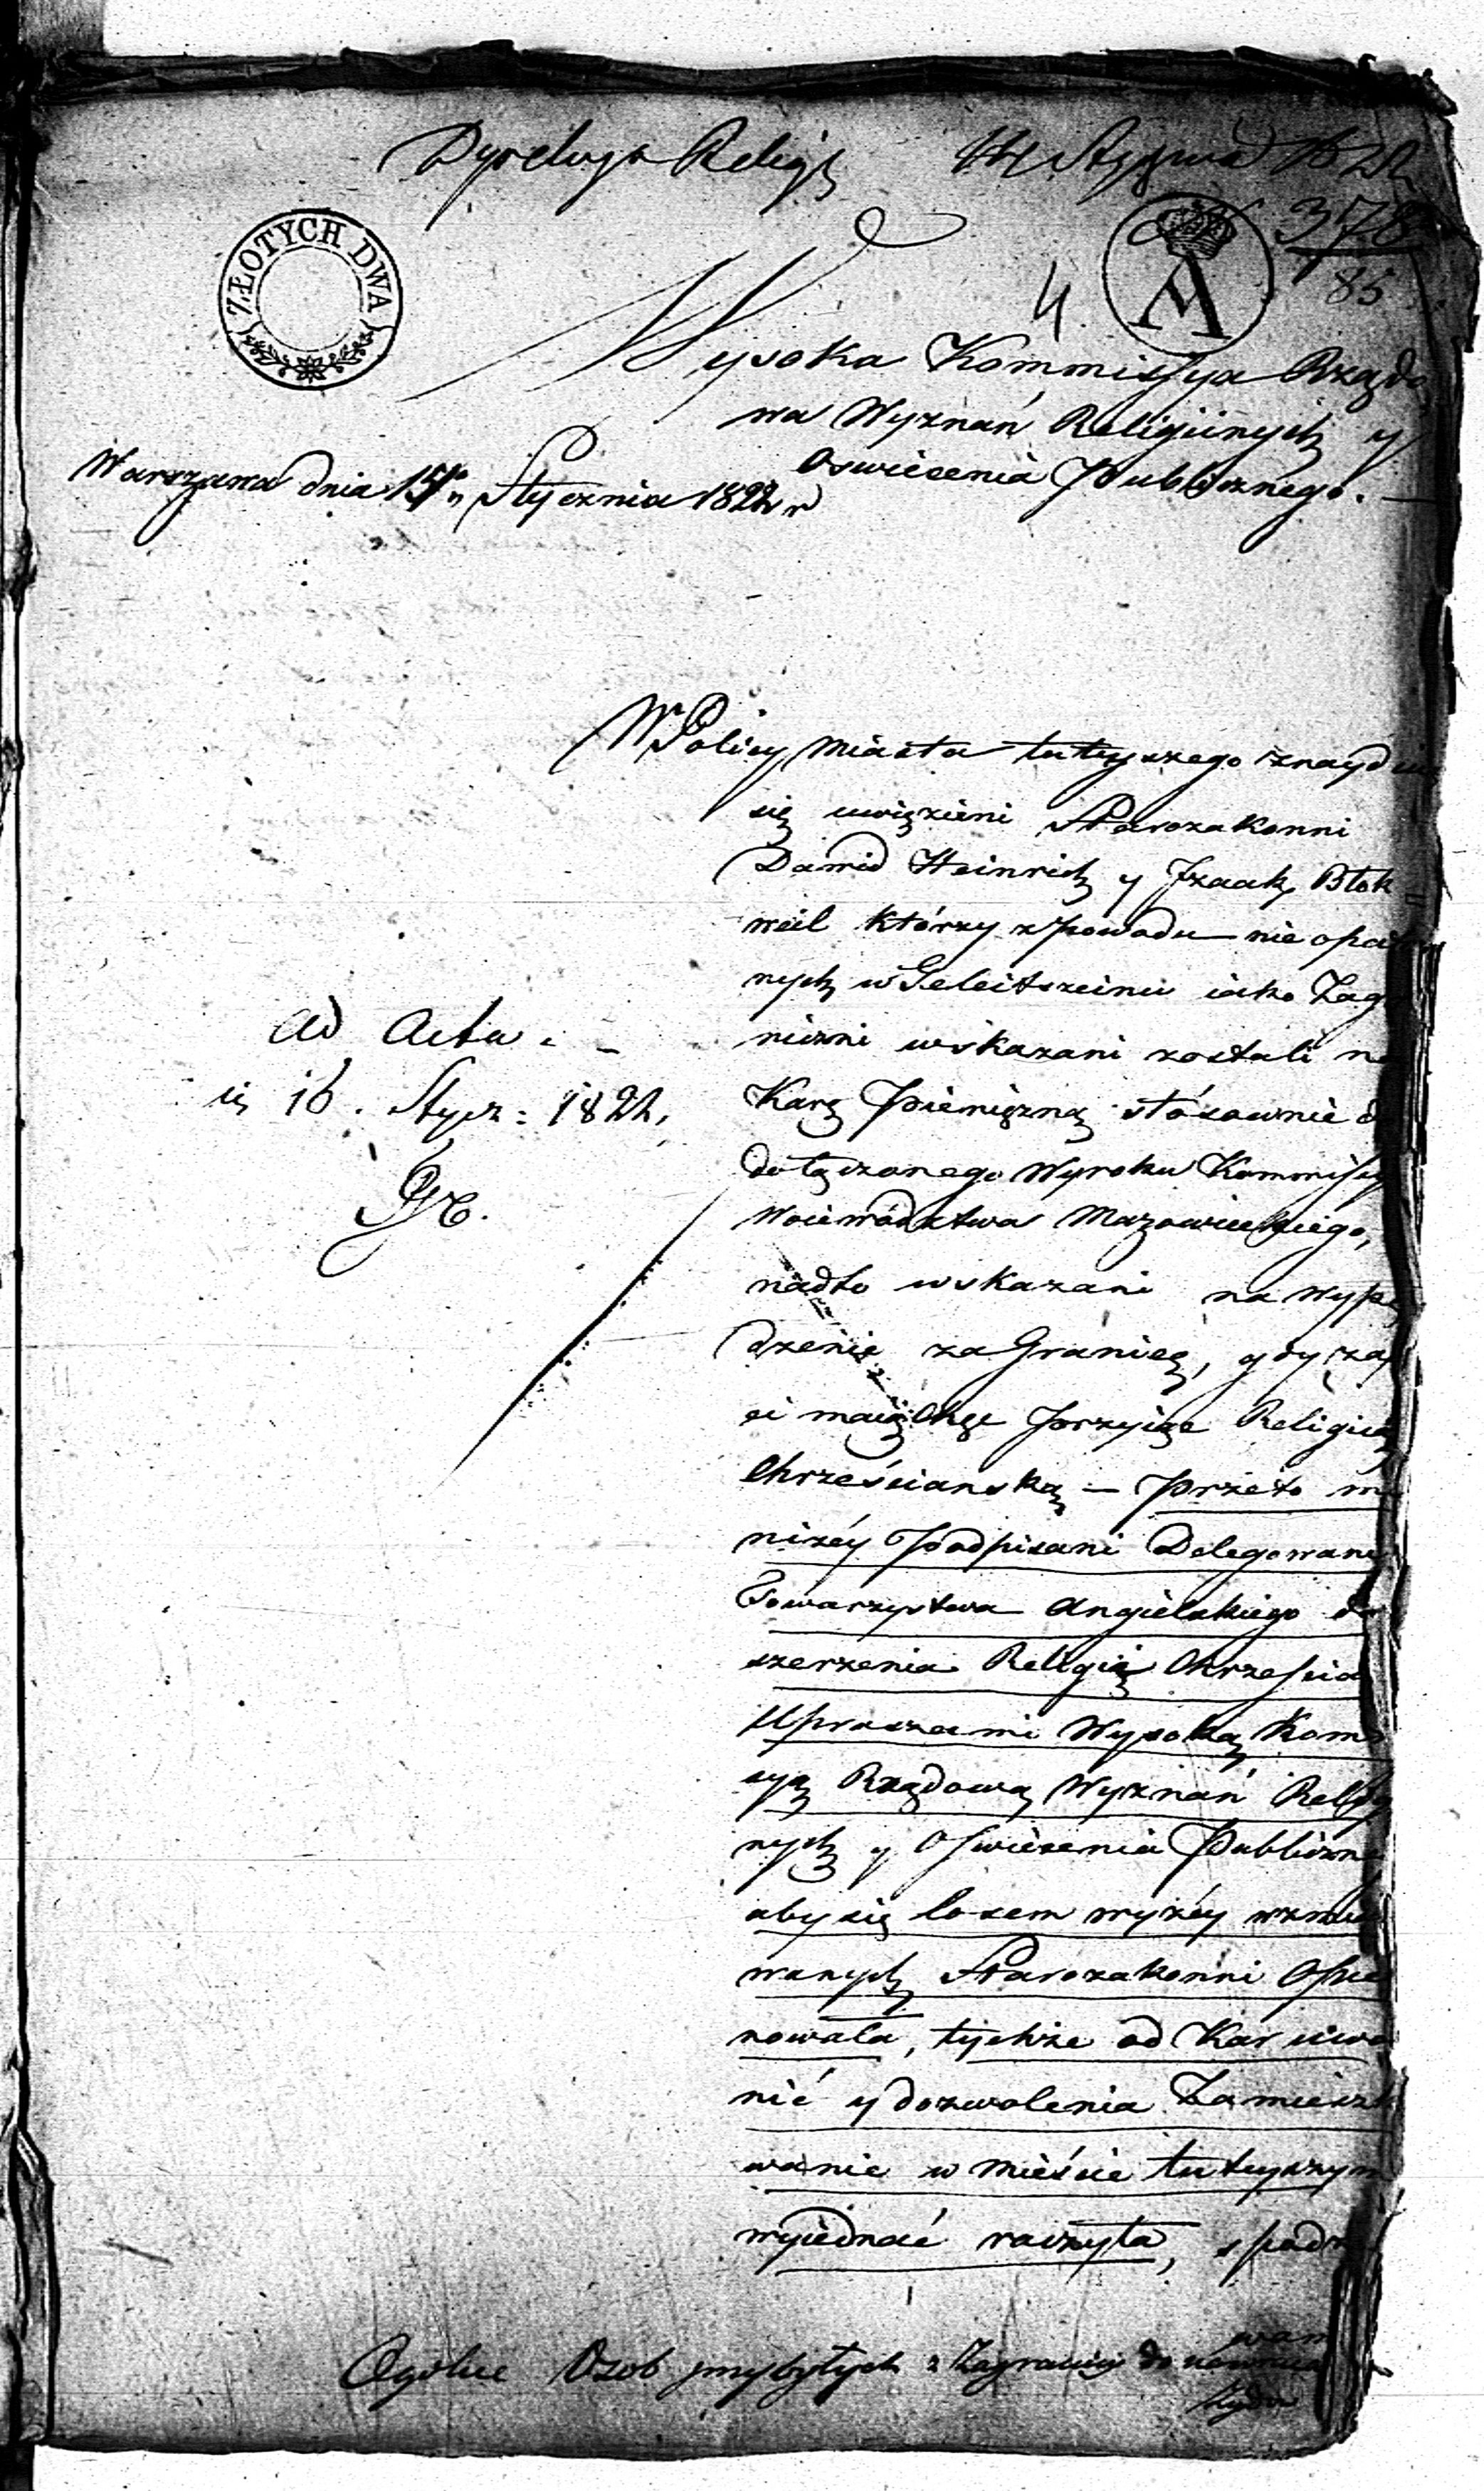 Dyrekcya Religij 14 Stycznia 1822
378
85
ZŁOTYCH DWA
4.
A
Wysoka Kommissya Rządo
wa Wyznań Religiinych y
Oswiecenia Publicznego. —
Warszawa dnia Stycznia 1822 r
W Policy miasta tuteyszego znaydu
się uwięzieni Starozakonni
Dawid Heinrich y Izaak Blok-
weil którzy z powodu nie opa
nych w Geleitszeinu iako Zag
niczni wskazani zostali n
Karę Pieniężną stósownie d
dołączonego Wyroku Kommissy
Woiewództwa Mazowieckiego,
nadto wskazani na wypę
dzenie za Granicę, gdy zaś
ci maią chęć przyięc Religią
Chrześcianską — Przeto my
niżéy Podpisani Delegowani
Towarzystwa Angielskiego do
szerzenia Religii Chrzescia
Upraszami Wysoką Kom
syą Rządową Wyznań Relig
nych y Oswiecenia Publiczne
aby się losem wyżéy wzmia
wanych Starozakonni Opie
kowała, tychże od Kar uwo
nić y dozwolenia Zamieszk
wanie w mieście tuteyszym
wyiednać raczyła, spodz
wam
Ad Acta. —
16. Stycz: 1822.
Ogólne Osob przybyłych z Zagranicy do